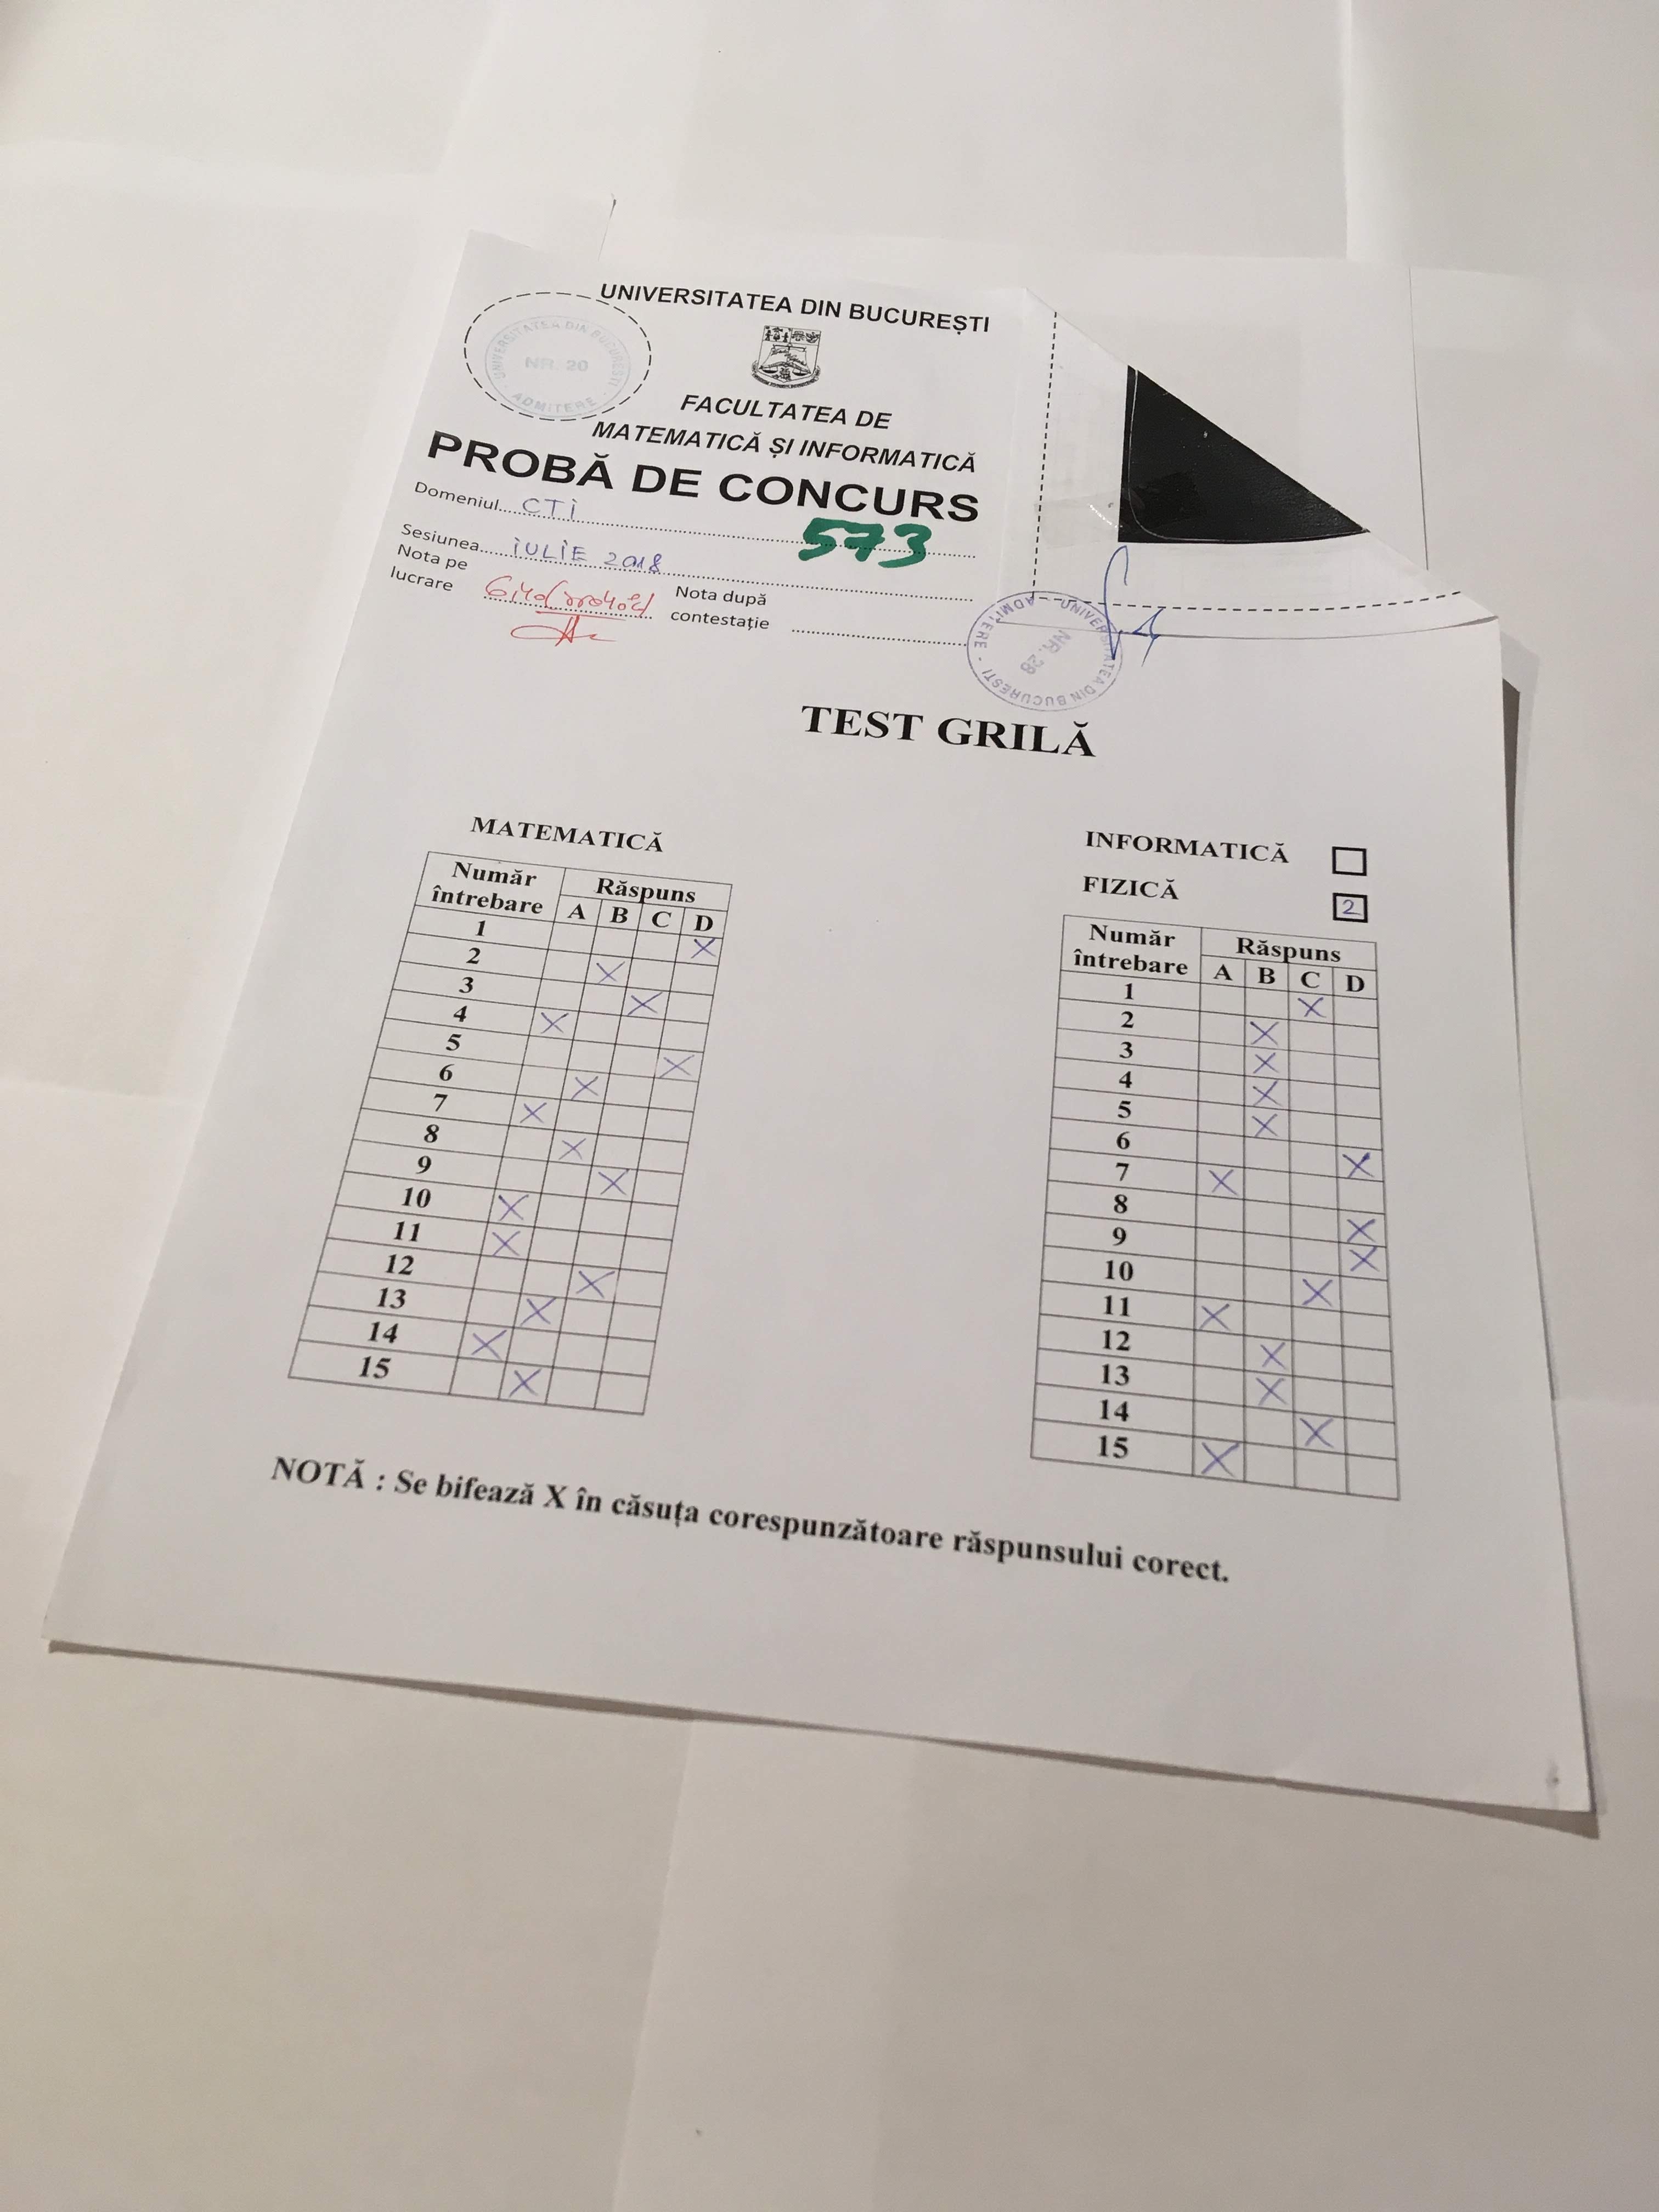 UNIVERSITATEA DIN BUCUREȘTI
UNIVERSITATEA DIN BUCUREȘTI
NR. 20
ADMITERE
FACULTATEA DE
MATEMATICĂ ȘI INFORMATICĂ
PROBĂ DE CONCURS
Domeniul CTi
573
Sesiunea iULIE 2018
Nota pe
lucrare
Nota după
contestație
UNIVERSITATEA DIN BUCURESTI
NR. 28
ADMITERE
TEST GRILĂ
MATEMATICĂ
Număr
întrebare
Răspuns
A B C D
1 X
2 X
3 X
4 X
5 X
6 X
7 X
8 X
9 X
10 X
11 X
12 X
13 X
14 X
15 X
INFORMATICĂ
FIZICĂ 2
Număr
întrebare
Răspuns
A B C D
1 X
2 X
3 X
4 X
5 X
6 X
7 X
8 X
9 X
10 X
11 X
12 X
13 X
14 X
15 X
NOTĂ : Se bifează X în căsuța corespunzătoare răspunsului corect.